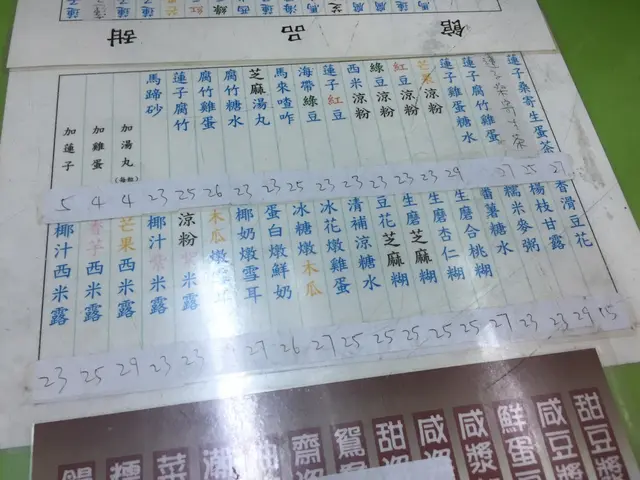 甜品館
蓮子桑寄生蛋茶
蓮子桑寄生茶
蓮子腐竹雞蛋糖水
蓮子雞蛋糖水
芒果涼粉
紅豆涼粉
綠豆涼粉
西米涼粉
蓮子紅豆
海帶綠豆
馬來喳咋
芝麻湯丸
腐竹糖水
腐竹雞蛋
蓮子腐竹
馬蹄砂
加湯丸(每粒)
加雞蛋
加蓮子
5 4 4 23 25 26 23 23 25 23 23 23 23 29 27 25 27
香滑豆花
楊枝甘露
糯米麥粥
番薯糖水
生磨合桃糊
生磨杏仁糊
生磨芝麻糊
豆花芝麻糊
清補涼糖水
冰花燉雞蛋
冰糖燉木瓜
蛋白燉鮮奶
椰奶燉雪耳
木瓜燉
涼粉紫米露
椰汁紫米露
芒果西米露
香芋西米露
椰汁西米露
23 25 29 23 23 27 26 27 25 25 25 25 25 27 23 23 29 15
甜豆漿
咸豆漿
鮮蛋
咸漿
咸
甜
鴛
齋
潮
菜